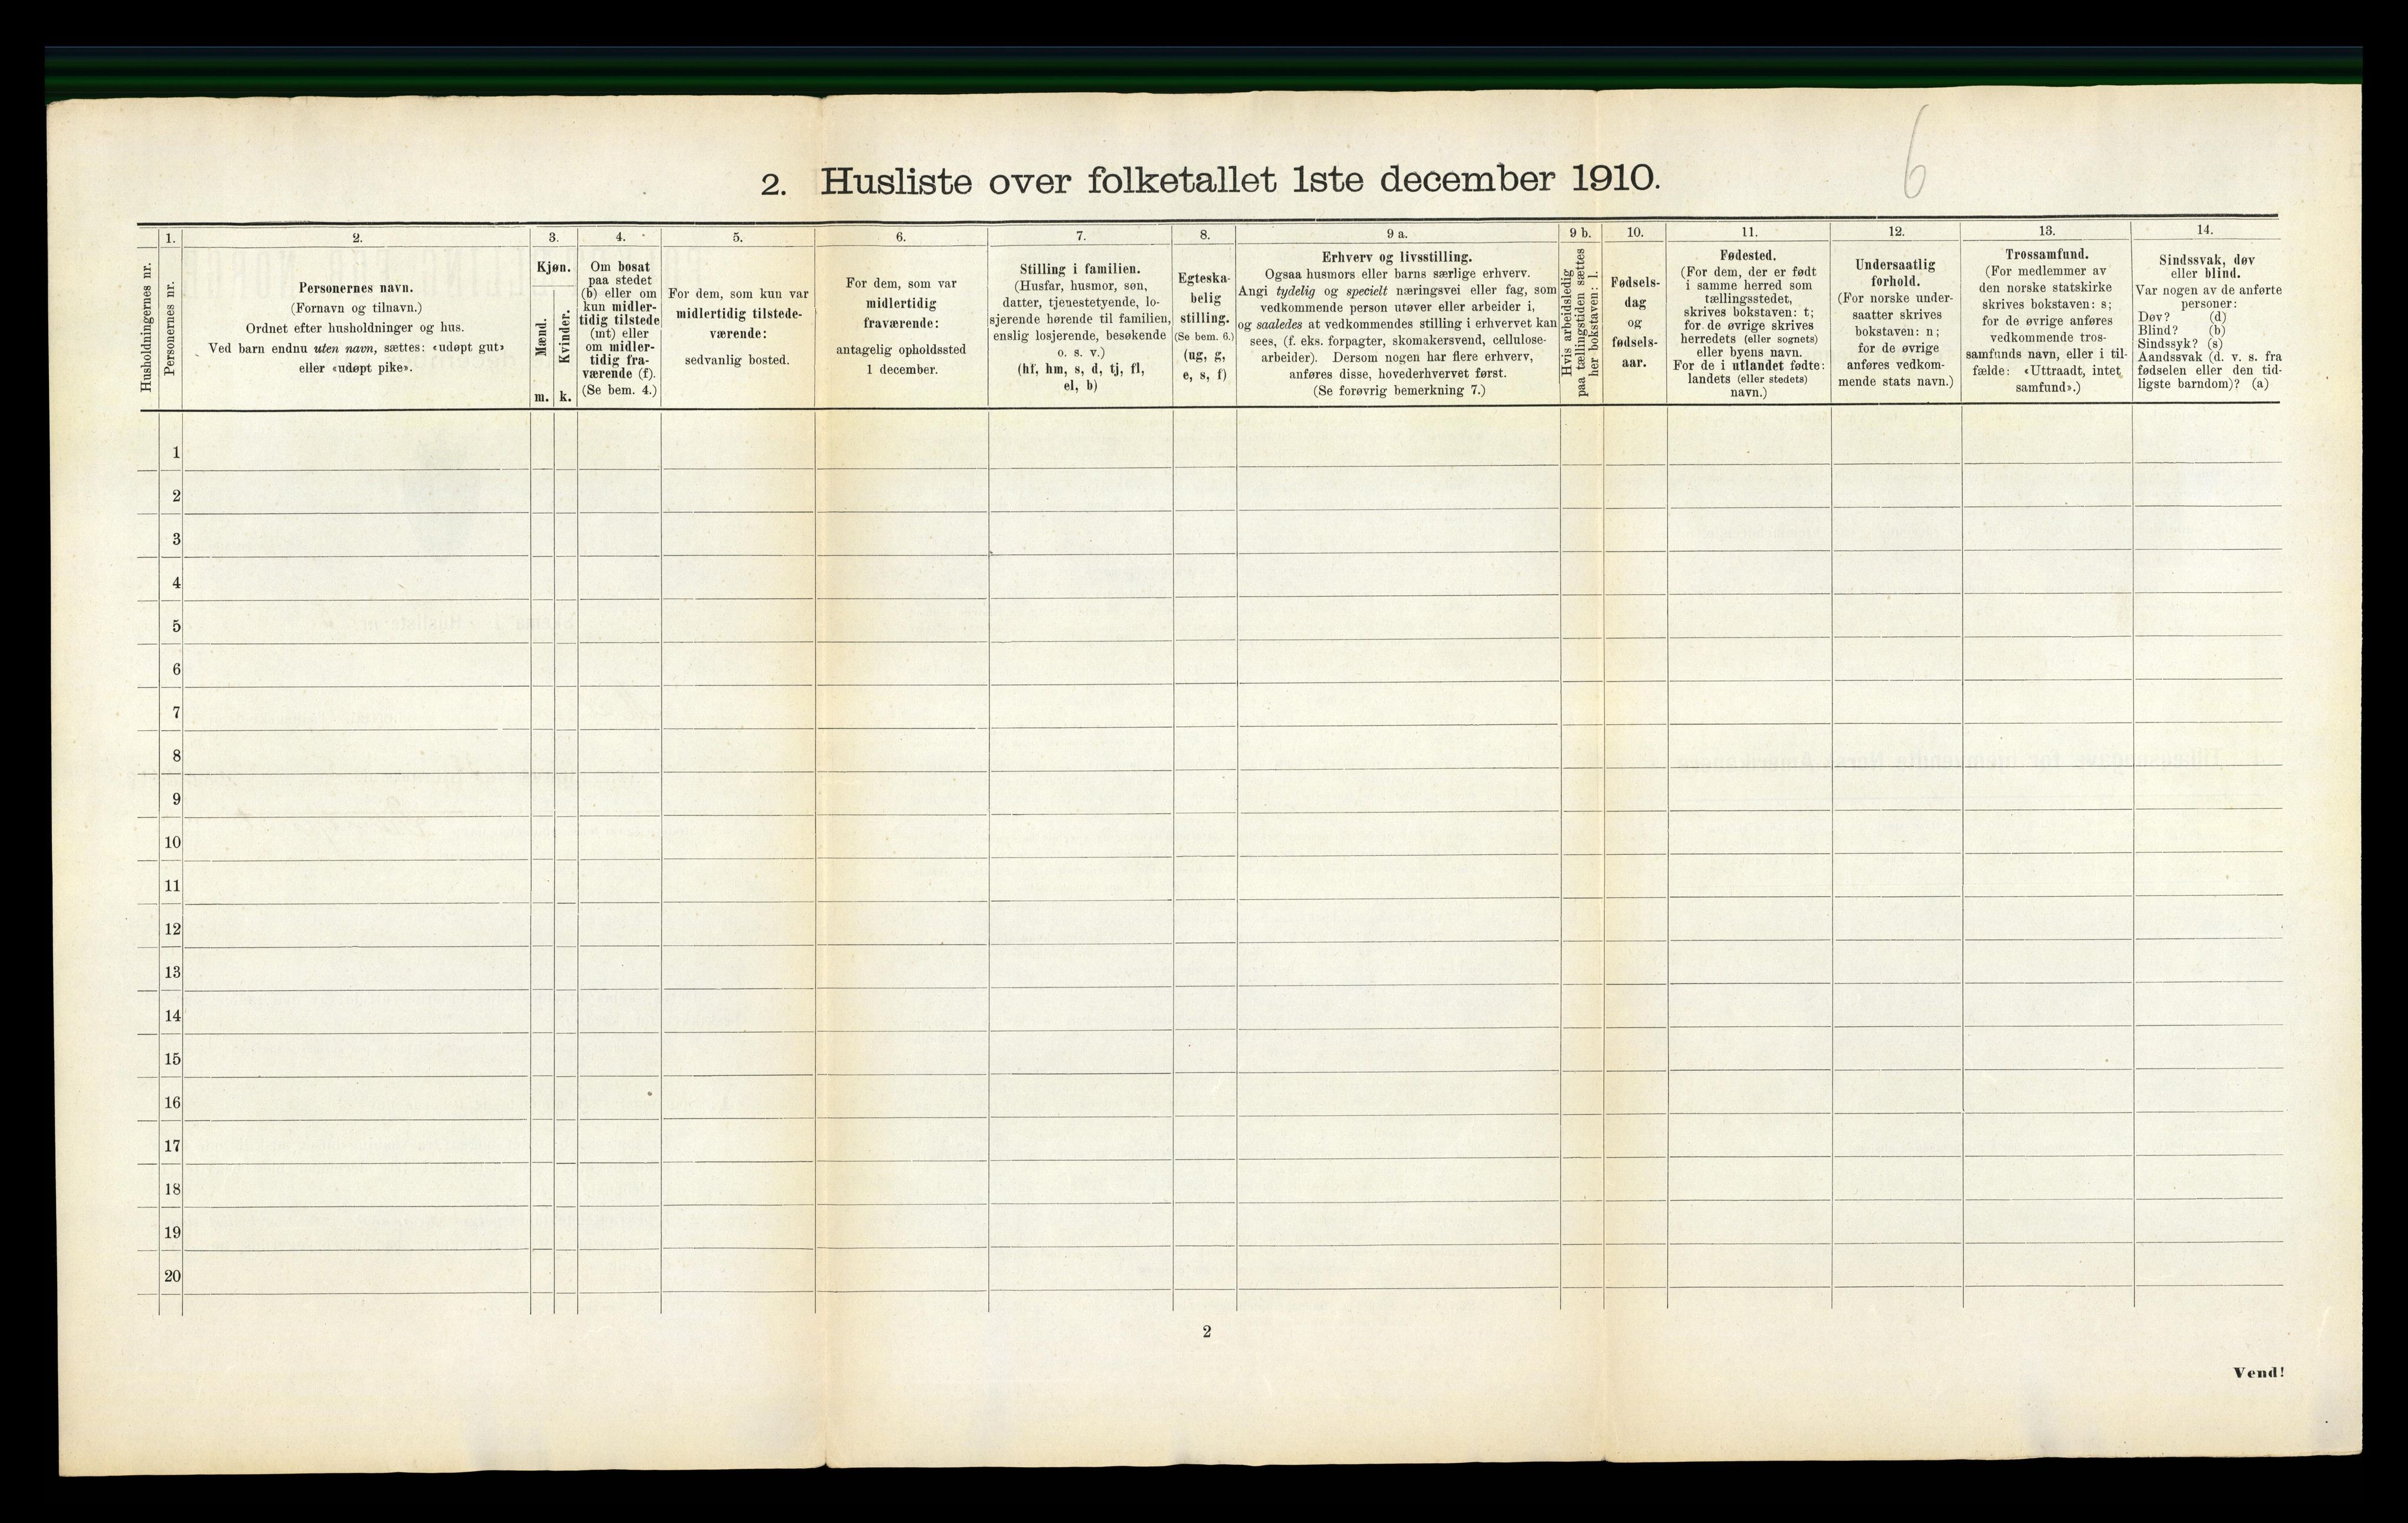 6
2. Husliste over folketallet 1ste december 1910.
Husholdningernes nr.
1.
Personernes nr.
2.
Personernes navn.
(Fornavn og tilnavn.)
Ordnet efter husholdninger og hus.
Ved barn endnu uten navn, sættes: «udøpt gut»
eller «udøpt pike».
3.
Kjøn.
Mænd.
m.
Kvinder.
k.
4.
Om bosat
paa stedet
(b) eller om
kun midler-
tidig tilstede
(mt) eller
om midler-
tidig fra-
værende (f).
(Se bem. 4.)
5.
For dem, som kun var
midlertidig tilstede-
værende:
sedvanlig bosted.
6.
For dem, som var
midlertidig
fraværende:
antagelig opholdssted
1 december.
7.
Stilling i familien.
(Husfar, husmor, søn,
datter, tjenestetyende, lo-
sjerende hørende til familien,
enslig losjerende, besøkende
o. s. v.)
(hf, hm, s, d, tj, fl,
el, b)
8.
Egteska-
belig
stilling.
(Se bem. 6.)
(ug, g,
e, s, f)
9 a.
Erhverv og livsstilling.
Ogsaa husmors eller barns særlige erhverv.
Angi tydelig og specielt næringsvei eller fag, som
vedkommende person utøver eller arbeider i,
og saaledes at vedkommendes stilling i erhvervet kan
sees, (f. eks. forpagter, skomakersvend, cellulose-
arbeider). Dersom nogen har flere erhverv,
anføres disse, hovederhvervet først.
(Se forøvrig bemerkning 7.)
9 b.
Hvis arbeidsledig
paa tællingstiden sættes
her bokstaven: l.
10.
Fødsels-
dag
og
fødsels-
aar.
11.
Fødested.
(For dem, der er født
i samme herred som
tællingsstedet,
skrives bokstaven: t;
for de øvrige skrives
herredets (eller sognets)
eller byens navn.
For de i utlandet fødte:
landets (eller stedets)
navn.)
12.
Undersaatlig
forhold.
(For norske under-
saatter skrives
bokstaven: n;
for de øvrige
anføres vedkom-
mende stats navn.)
13.
Trossamfund.
(For medlemmer av
den norske statskirke
skrives bokstaven: s;
for de øvrige anføres
vedkommende tros-
samfunds navn, eller i til-
fælde: «Uttraadt, intet
samfund».)
14.
Sindssvak, døv
eller blind.
Var nogen av de anførte
personer:
Døv? (d)
Blind? (b)
Sindssyk? (s)
Aandssvak (d. v. s. fra
fødselen eller den tid-
ligste barndom)? (a)
1
2
3
4
5
6
7
8
9
10
11
12
13
14
15
16
17
18
19
20
2
Vend!